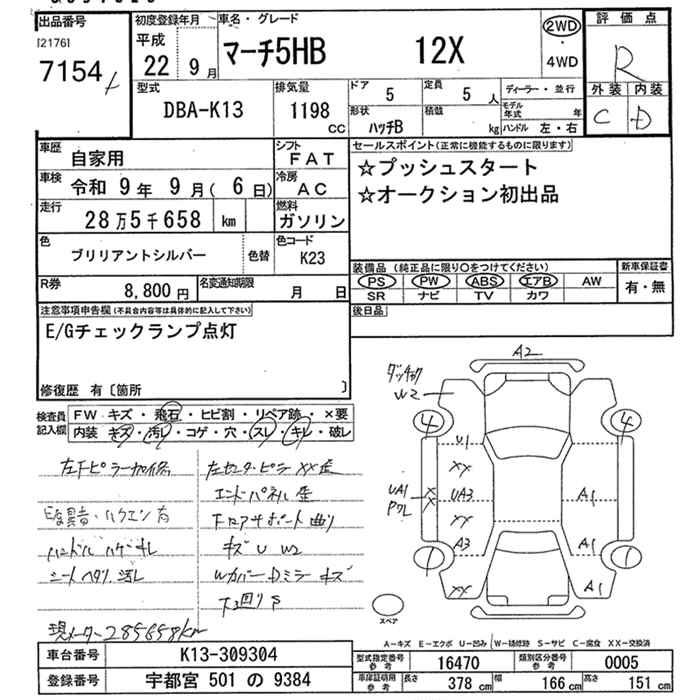 出品番号
[2176]
7154
初度登録年月
平成
22 9月
車名・グレード
マーチ5HB 12X
2WD
・
4WD
評価点
R
外装 内装
C D
型式
DBA-K13
排気量
1198
CC
ドア
5
定員
5 人
ディーラー・並行
モデル年式 年
形状
ハッチB
積載
kg
ハンドル 左・右
車歴
自家用
シフト
FAT
セールスポイント(正常に機能するものに限ります)
☆プッシュスタート
☆オークション初出品
車検
令和 9年 9月( 6日)
冷房
AC
走行
28万5千658 km
燃料
ガソリン
色
ブリリアントシルバー
色替
色コード
K23
装備品(純正品に限り○をつけてください)
PS PW ABS エアB AW
SR ナビ TV カワ
新車保証書
有・無
R券
8,800円
名変通知期限
月 日
後日品
注意事項申告欄(不具合内容等は具体的に記入して下さい)
E/Gチェックランプ点灯
修復歴 有〔箇所 〕
検査員記入欄
FW キズ・飛石・ヒビ割・リペア跡・×要
内装 キズ・汚レ・コゲ・穴・スレ・キレ・破レ
エンドパネル
キズ U W2
シートヘタリ
Wカバー・Dミラーキズ
現メーター285658km
A2
W2
4 4
U1
XX
UA1
UA3
A1
XX
A3
A1
1 1
XX
A1
スペア
A-キズ E-エクボ U-凹ミ W-補修跡 S-サビ C-腐食 XX-交換済
車台番号
K13-309304
型式指定番号 参考
16470
類別区分番号 参考
0005
登録番号
宇都宮 501 の 9384
車庫証明用 参考
長さ 378 cm
幅 166 cm
高さ 151 cm